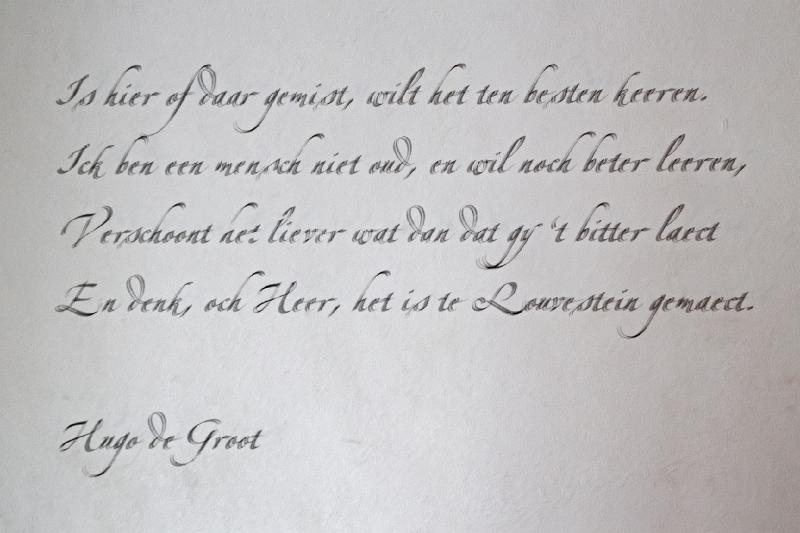 Is hier of daar gemist, wilt het ten besten keeren.
Ick ben een mensch niet oud, en wil noch beter leeren,
Verschoont het liever wat dan dat gy 't bitter laect
En denk, och Heer, het is te Louvestein gemaect.
Hugo de Groot